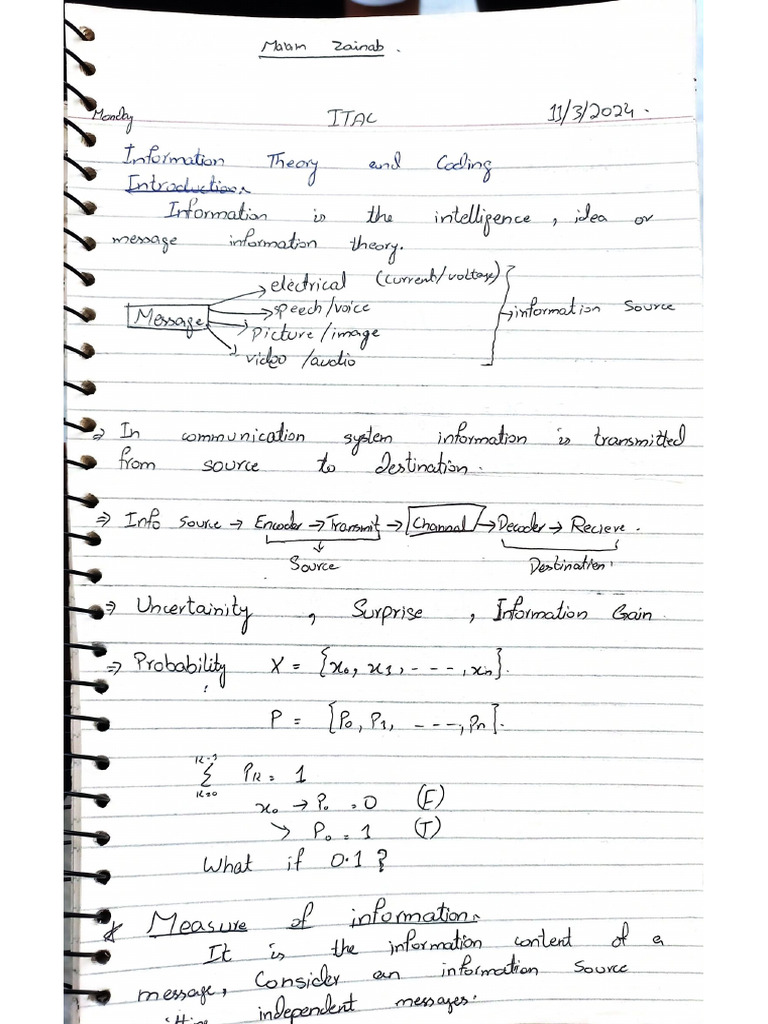 Maam Zainab.
Monday ITAC 11/3/2024.
Information Theory and Coding
Introduction.
Information is the intelligence, idea or
message information theory.
Message
electrical (current/voltage)
speech/voice
picture/image
video/audio
information source
⇒ In communication system information is transmitted
from source to destination.
⇒ Info source → Encoder → Transmit → Channal → Decoder → Recieve.
Source Destination.
⇒ Uncertainity, Surprise, Information Gain
⇒ Probability X = {x0, x1, ----, xn}.
P = {P0, P1, ----, Pn}.
K-1
∑ PK = 1
K=0
x0 → P0 = 0 (F)
↘ P0 = 1 (T)
What if 0.1?
* Measure of information.
It is the information content of a
message, Consider an information source
independent messages.